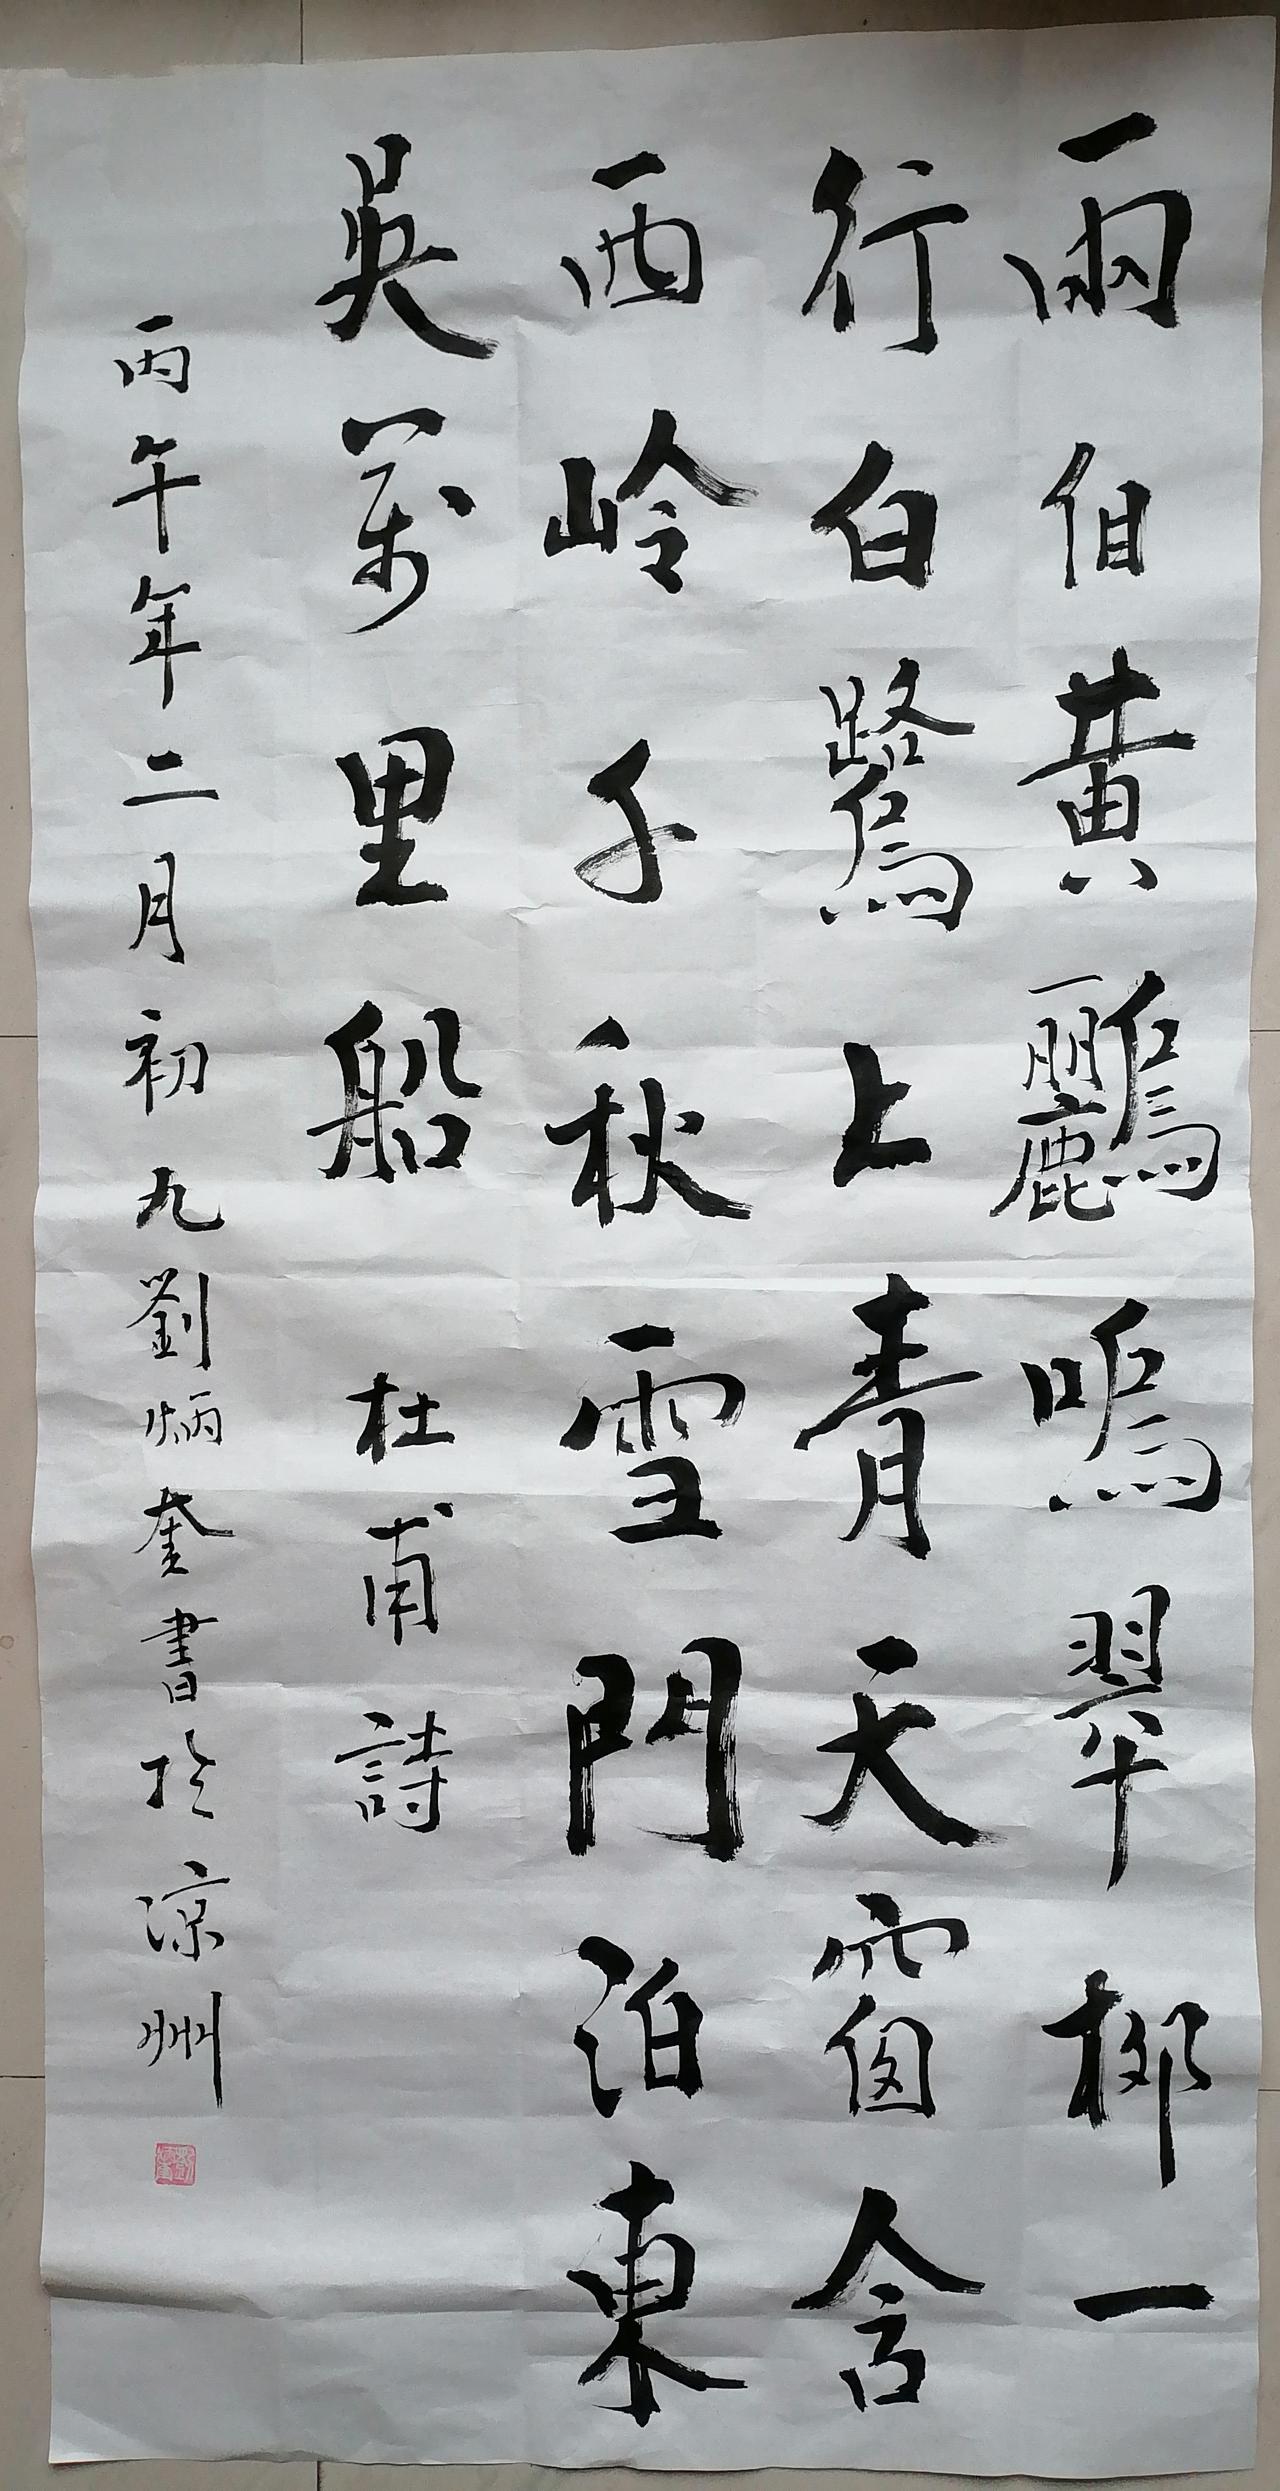 兩個黃鸝鳴翠柳一
行白鷺上青天窗含
西岭千秋雪門泊東
吳萬里船 杜甫詩
丙午年二月初九劉炳奎書於涼州